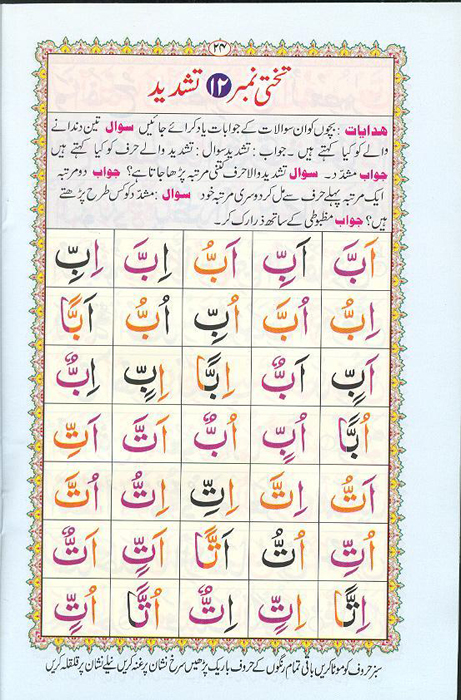 ۲۴
تختی نمبر ۱۲ تشدید
ھدایات : بچوں کو ان سوالات کے جوابات یاد کرائے جائیں سوال تین دندانے
والے کو کیا کہتے ہیں ۔ جواب : تشدید سوال : تشدید والے حرف کو کیا کہتے ہیں
جواب مشدّد ۔ سوال تشدید والا حرف کتنی مرتبہ پڑھا جاتا ہے؟ جواب دو مرتبہ
ایک مرتبہ پہلے حرف سے مل کر دوسری مرتبہ خود سوال : مشدّد کو کس طرح پڑھتے
ہیں؟ جواب مظبوطی کے ساتھ ذرا رک کر ۔
اَبَّ اَبِّ اَبُّ اِبَّ اِبِّ
اِبُّ اُبَّ اُبِّ اُبُّ اَبًّا
اَبٍّ اَبٌّ اِبًّا اِبٍّ اِبٌّ
اُبًّا اُبٍّ اُبٌّ اَتَّ اَتِّ
اَتُّ اِتَّ اِتِّ اِتُّ اُتَّ
اُتِّ اُتُّ اَتًّا اَتٍّ اَتٌّ
اِتًّا اِتٍّ اِتٌّ اُتًّا اُتٍّ
سبز حروف کو موٹا کریں باقی تمام رنگوں کے حروف باریک پڑھیں سرخ نشان پر غنہ کریں نیلے نشان پر قلقلہ کریں